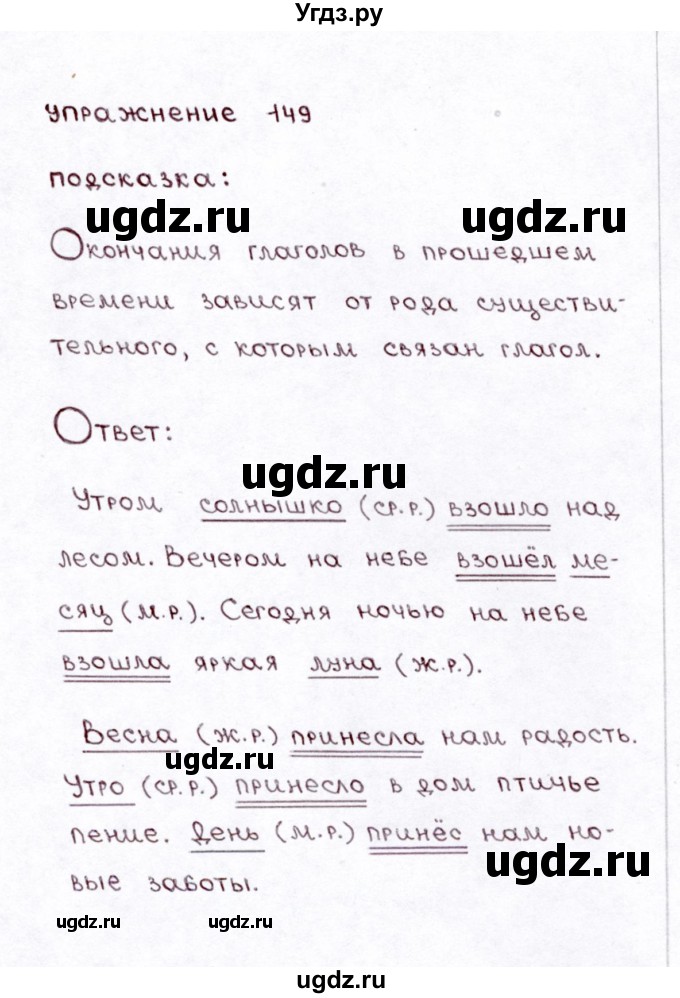 Угдз.ру
упражнение 149
подсказка:
ugdz.ru ugdz.ru
Окончания глаголов в прошедшем
времени зависят от рода существи-
тельного, с которым связан глагол.
Ответ:
ugdz.ru
Утром солнышко (ср.р.) взошло над
лесом. Вечером на небе взошёл ме-
сяц (м.р.). Сегодня ночью на небе
взошла яркая луна (ж.р.).
Весна (ж.р.) принесла нам радость.
ugdz.ru
Утро (ср.р.) принесло в дом птичье
пение. День (м.р.) принёс нам но-
ugdz.ru
вые заботы.
ugdz.ru ugdz.ru
ugdz.ru